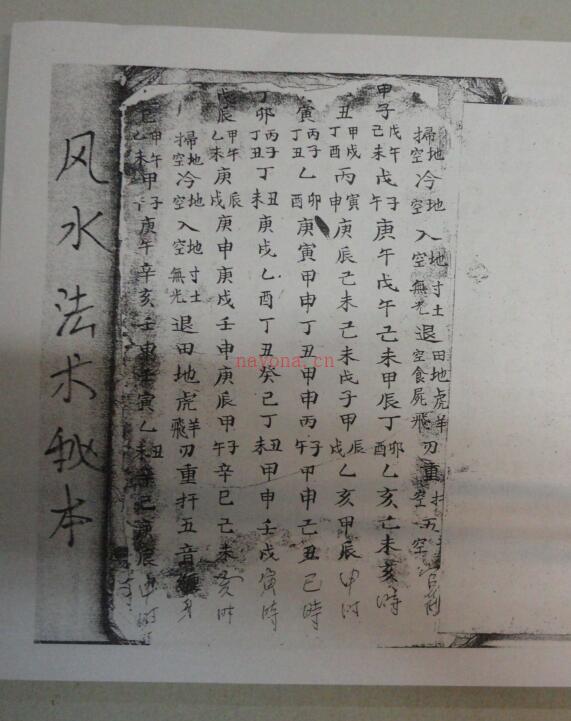 掃地空冷地空入地空無寸土退田地空食屍虎羊飛刃重扞空五空
甲子戊午己未戊子午庚午戊午己未甲辰丁卯酉乙亥己未亥時
丑甲戌丁酉丙寅申庚辰己未己未戊子甲辰戌乙亥甲辰申时
寅丙子丁丑乙卯酉庚寅甲申丁丑甲申丙子午甲申己丑巳時
丁卯丙子丁丑丁丑未庚戌乙酉丁丑癸巳丁丑未甲申壬戌寅時
戊辰甲午乙未庚辰戌庚申庚戌壬申庚辰甲子午辛巳己未亥时
掃地空冷地空入地空無寸土光退田地虎羊飛刃重扞五音
甲午乙未甲子庚午辛亥壬申壬寅乙丑未辛巳庚辰
风水法术秘本
nayona.cn